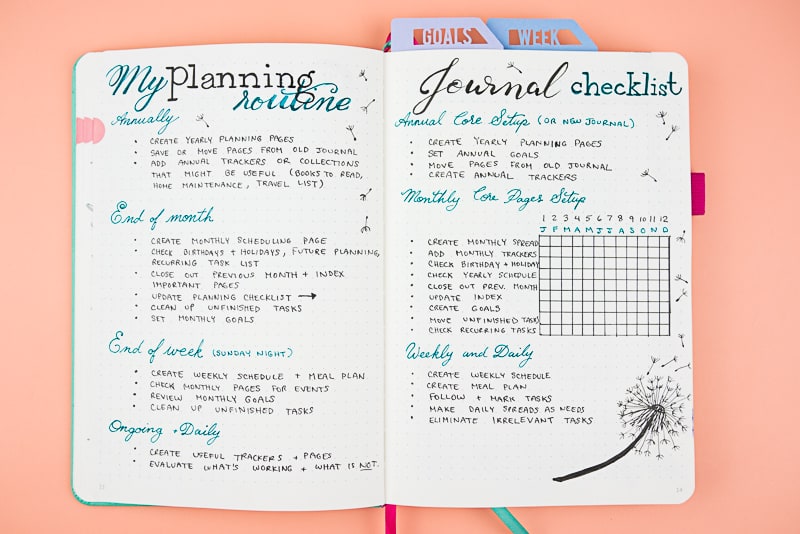 GOALS
WEEK
My planning
routine
Annually
• CREATE YEARLY PLANNING PAGES
• SAVE OR MOVE PAGES FROM OLD JOURNAL
• ADD ANNUAL TRACKERS OR COLLECTIONS
THAT MIGHT BE USEFUL (BOOKS TO READ,
HOME MAINTENANCE, TRAVEL LIST)
End of month
• CREATE MONTHLY SCHEDULING PAGE
• CHECK BIRTHDAYS + HOLIDAYS, FUTURE PLANNING,
RECURRING TASK LIST
• CLOSE OUT PREVIOUS MONTH + INDEX
IMPORTANT PAGES
• UPDATE PLANNING CHECKLIST →
• CLEAN UP UNFINISHED TASKS
• SET MONTHLY GOALS
End of week (SUNDAY NIGHT)
• CREATE WEEKLY SCHEDULE + MEAL PLAN
• CHECK MONTHLY PAGES FOR EVENTS
• REVIEW MONTHLY GOALS
• CLEAN UP UNFINISHED TASKS
Ongoing + Daily
• CREATE USEFUL TRACKERS + PAGES
• EVALUATE WHAT'S WORKING + WHAT IS NOT.
Journal checklist
Annual Core Setup (OR NEW JOURNAL)
• CREATE YEARLY PLANNING PAGES
• SET ANNUAL GOALS
• MOVE PAGES FROM OLD JOURNAL
• CREATE ANNUAL TRACKERS
Monthly Core Pages Setup
1 2 3 4 5 6 7 8 9 10 11 12
J F M A M J J A S O N D
• CREATE MONTHLY SPREAD
• ADD MONTHLY TRACKERS
• CHECK BIRTHDAY + HOLIDAY
• CHECK YEARLY SCHEDULE
• CLOSE OUT PREV. MONTH
• UPDATE INDEX
• CREATE GOALS
• MOVE UNFINISHED TASKS
• CHECK RECURRING TASKS
Weekly and Daily
• CREATE WEEKLY SCHEDULE
• CREATE MEAL PLAN
• FOLLOW + MARK TASKS
• MAKE DAILY SPREADS AS NEEDS
• ELIMINATE IRRELEVANT TASKS